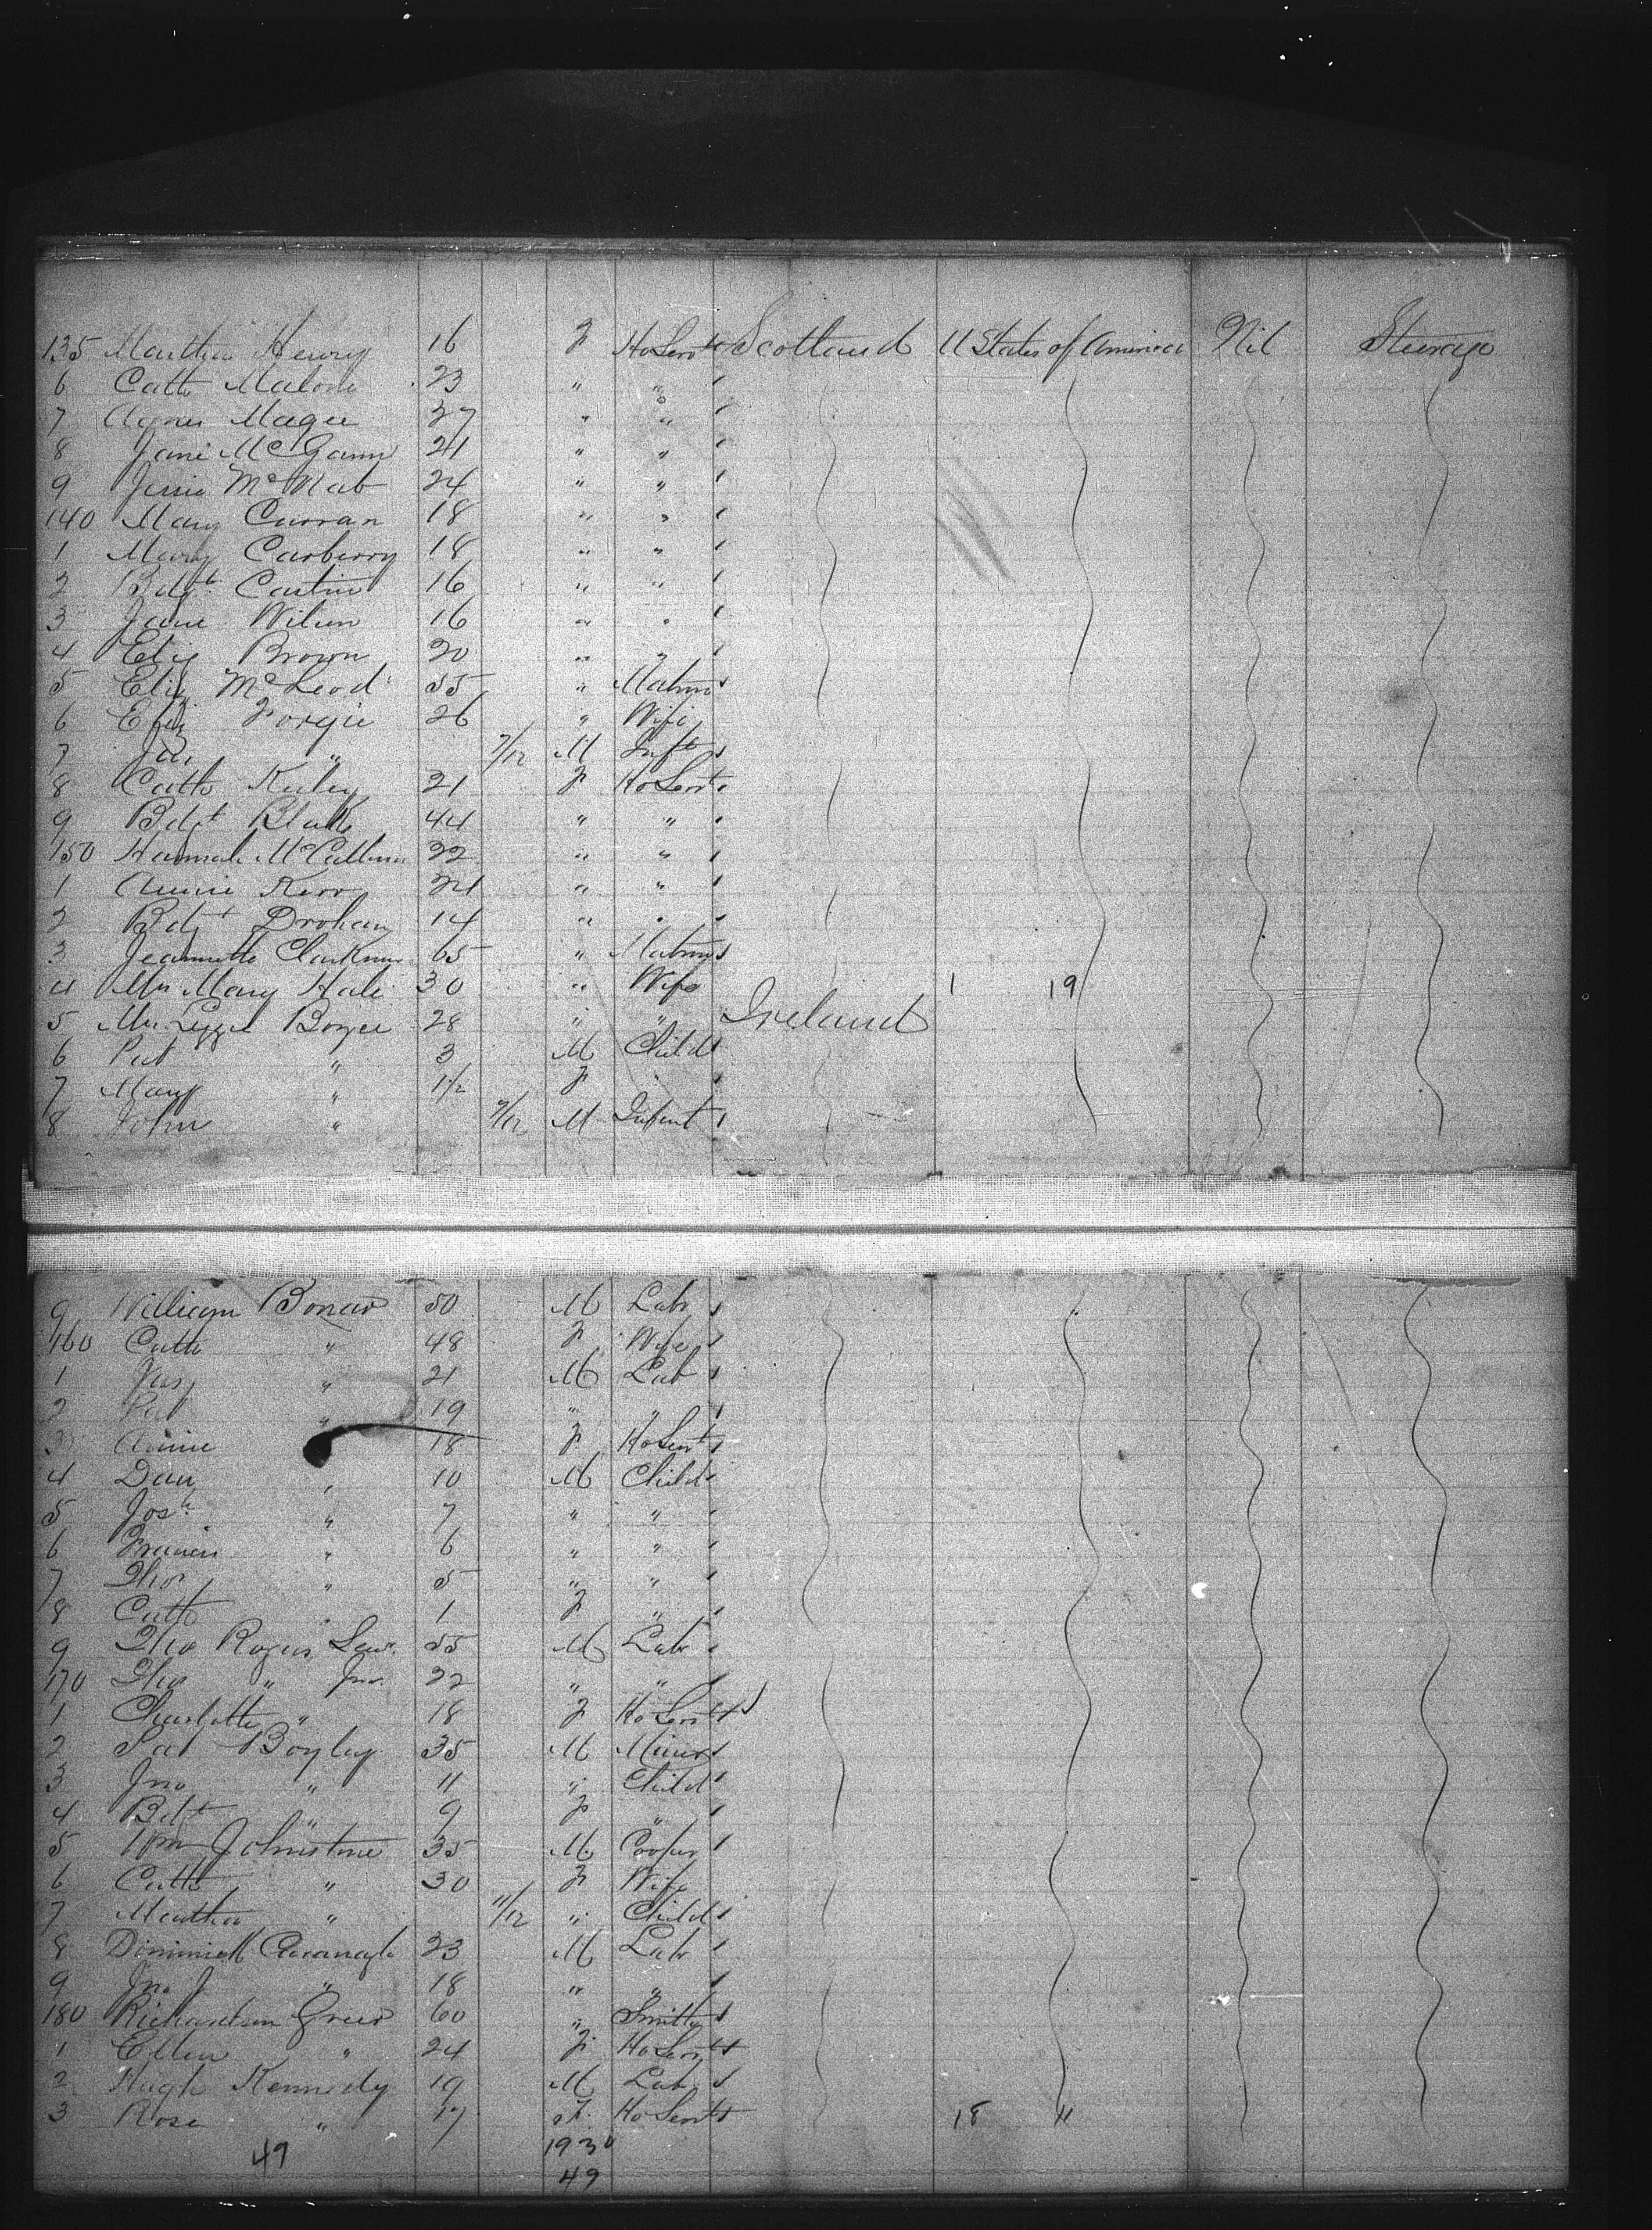 135 Martha Henry 16 F HoServt Scotland U States of America Nil Steerage
6 Cath Malone 23 " "
7 Agnes Magee 27 " "
8 Jane McGann 21 " "
9 Jessie McNab 24 " "
140 Mary Curran 18 " "
1 Mary Carberry 18 " "
2 Bdgt 16 " "
3 Jane Wilson 16 " "
4 Eliz Brown 20 " "
5 Eliz McLeod 55 " Matron
6 Eliz Forgie 26 " Wife
7 Jas " 7/12 M Inft
8 Cath 21 F HoServt
9 Bdgt Blake 44 " "
150 Hannah McCallum 22 " "
1 Annie Kerr 21 " "
2 Bdgt Drohan 14 " "
3 Jeannette Clarkson 65 " Matron
4 Mrs Mary Hale 30 " Wife 1 19
5 Mrs Lizzie Boyce 28 " " Ireland
6 Pat " 3 M Child
7 Mary " 1 1/2 F "
8 John " 9/12 M Infant
9 William Bonar 50 M Labr
160 Cath " 48 F Wife
1 Jas " 21 M Lab
2 Pat " 19 " "
3 Annie 18 F HoServt
4 Dan " 10 M Child
5 Josh " 7 " "
6 Francis " 6 " "
7 Thos " 5 " "
8 Cath " 1 F "
9 Thos Rogers Senr. 55 M Labr
170 Thos " Jnr. 22 " "
1 Charlotte " 18 F HoServt
2 Pat Boyley 35 M Miner
3 Jno " 11 " Child
4 Bdgt " 9 F "
5 Wm Johnstone 35 M Cooper
6 Cath " 30 F Wife
7 Martha " 11/12 " Child
8 Dominick Cavanagh 23 M Labr
9 Jno J " 18 " "
180 Richardson Greer 60 " Smith
1 Ellen " 24 F HoServt
2 Hugh Kennedy 19 M Lab
3 Rose " 17 F. HoServt 18 11
49 1930
49